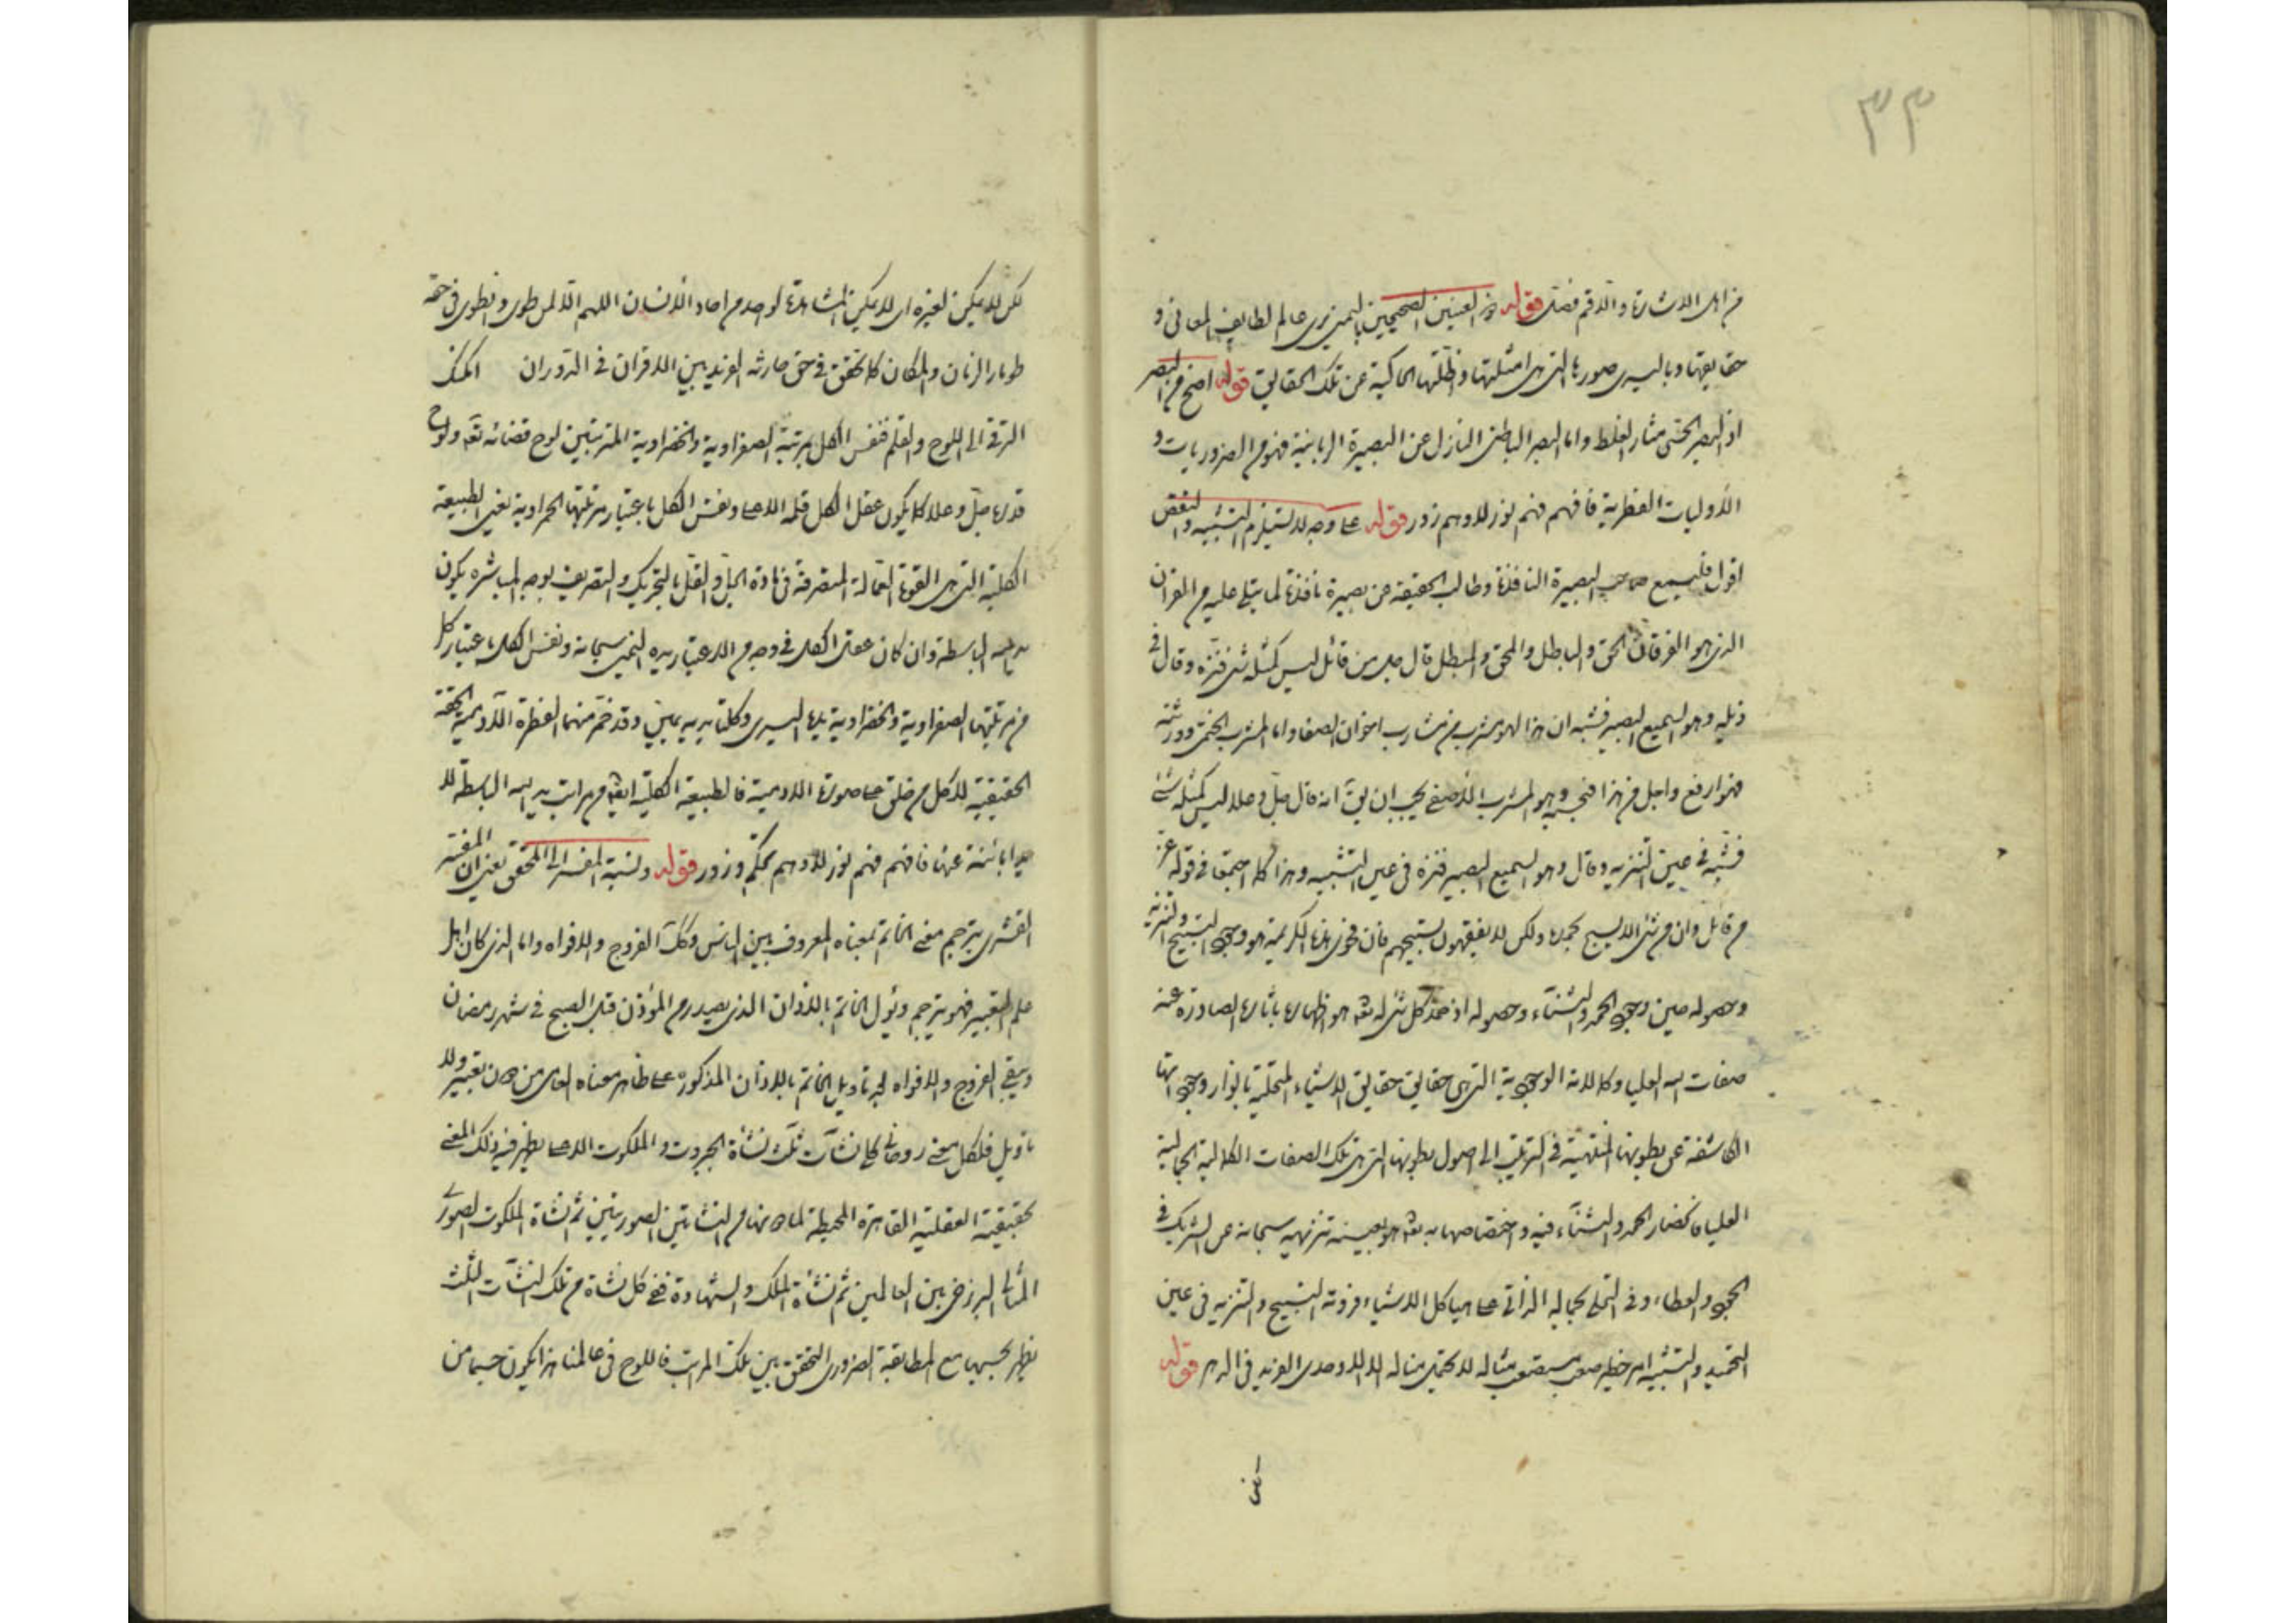 ٣٣
من اهل الاشارة والله قم فضلى قوله ذو العينين الصحيحين باليمنى يرى عالم لطايف المعانى و
حقايقها وباليسرى صورها التى هى امثلتها واظلتها الحاكية عن تلك الحقايق قوله اصح من البصر
اذ البصر الحسى مثار الغلط واما البصر الباطنى النازل عن البصيرة الربانية فهو من الضروريات و
الأوليات الفطرية فافهم فهم نور لا وهم زور قوله على وجه لا يستلزم التشبيه والنقص
اقول فليسمع صاحب البصيرة النافذة وطالب الحقيقة عن بصيرة نافذة لما يتلى عليه من القران
الذى هو الفرقان الحق والباطل والمحق والمبطل قال جل من قائل ليس كمثله شئ فنزه وقال فى
ذيله وهو السميع البصير فشبه ان هذا لهو مشرب من مشارب اخوان الصفا واما المشرب الختمى وورثته
فهو ارفع واجل من هذا فنحبه وهو المشرب الأصفى يجب ان يق انه قال جل وعلا ليس كمثله شئ
فشبه فى عين التنزيه وقال وهو السميع البصير فنزه فى عين التشبيه وهذا كله اجتمعا فى قوله عز
من قائل وان من شئ الا يسبح بحمده ولكن لا تفقهون تسبيحهم فان فحوى هذه الكريمة هو وجود التسبيح والتنزيه
وحصوله حين وجود الحمد والثناء وحصوله اذ حمد كل شئ له تعه هو اظهاره باثاره الصادرة عنه
صفات الله العليا وكمالاته الوجودية التى هى حقايق حقايق الاشياء المتجلية بانوار وجوداتها
الكاشفة عن بطونها المنتهية فى الترتيب الى اصول بطونها التى هى تلك الصفات الكمالية الجمالية
العليا فانحصار الحمد والثناء فيه واختصاصهما به تعه هو بعينه تنزيهه سبحانه عن الشريك فى
الجود والعطاء وفى التجلى بجماله الذاتى على هياكل الاشياء فروئة التسبيح والتنزيه فى عين
التحميد والتشبيه امر خطير صعب مستصعب مناله لا يحتمل مناله الا الاوحدى الفريد فى الدهر قوله
لكن لا يمكن لغيره اى لا يمكن المشاهدة لواحد من احاد الأنسان اللهم الا لمن طوى وانطوى فى حقه
طومار الزمان والمكان كما تحقق فى حق حارثه الفريد بين الاقران فى الدوران الممكن
الترقى الى اللوح والقلم فنفس الكل بمرتبة الصفراوية والخضراوية المترتبتين لوح قضائه تعه ولوح
قدره جل وعلا كما يكون عقل الكل قلمه الاعلى ونفس الكل باعتبار مرتبتها الحمراوية يعنى الطبيعة
الكلية التى هى القوة الفعالة المتصرفة فى مادة الكل بالتحريك والتصريف بوجه المباشرة يكون
يد الله الباسطة وان كان عقل الكل فى وجه من الاعتبار يده اليمنى سبحانه ونفس الكل باعتبار كل
من مرتبتها الصفراوية والخضراوية يده اليسرى وكلتا يديه يمين وقد خمر منهما الفطرة الآدمية الحقة
الحقيقية لا كل من خلق على صورة الادمية فالطبيعة الكلية ايضا من مراتب يد الله الباسطة لا
بائنة عنها فافهم فهم نور لا وهم تحكم وزور قوله ونسبة المفسر الى المحقق يعنى ان المفسر
القشرى يترجم معنى الخاتم بمعناه المعروف بين الناس وكك الفروج والافواه واما الذى كان اهل
علم التعبير فهو يترجم ويؤل الخاتم بالأذان الذى يصدر من المؤذن قبل الصبح فى شهر رمضان
ويبقى الفروج والافواه بعد تاويل الخاتم بالاذان المذكور على ظاهر معناه العامى من دون تعبير ولا
تاويل فلكل معنى روحانى كلى نشآت ثلث نشأة الجبروت والملكوت الاعلى يظهر فيه ذلك المعنى
بحقيقته العقلية القاهرة المحيطة لما دونها من النشاتين الصوريتين ثم نشاة الملكوت الصورى
المثالى البرزخى بين العالمين ثم نشأة الملك والشهادة ففى كل نشاة من تلك النشآت الثلث
يظهر بحسبها مع المطابقة الضرورى التحقق بين تلك المراتب فاللوح فى عالمنا هذا يكون جسما من